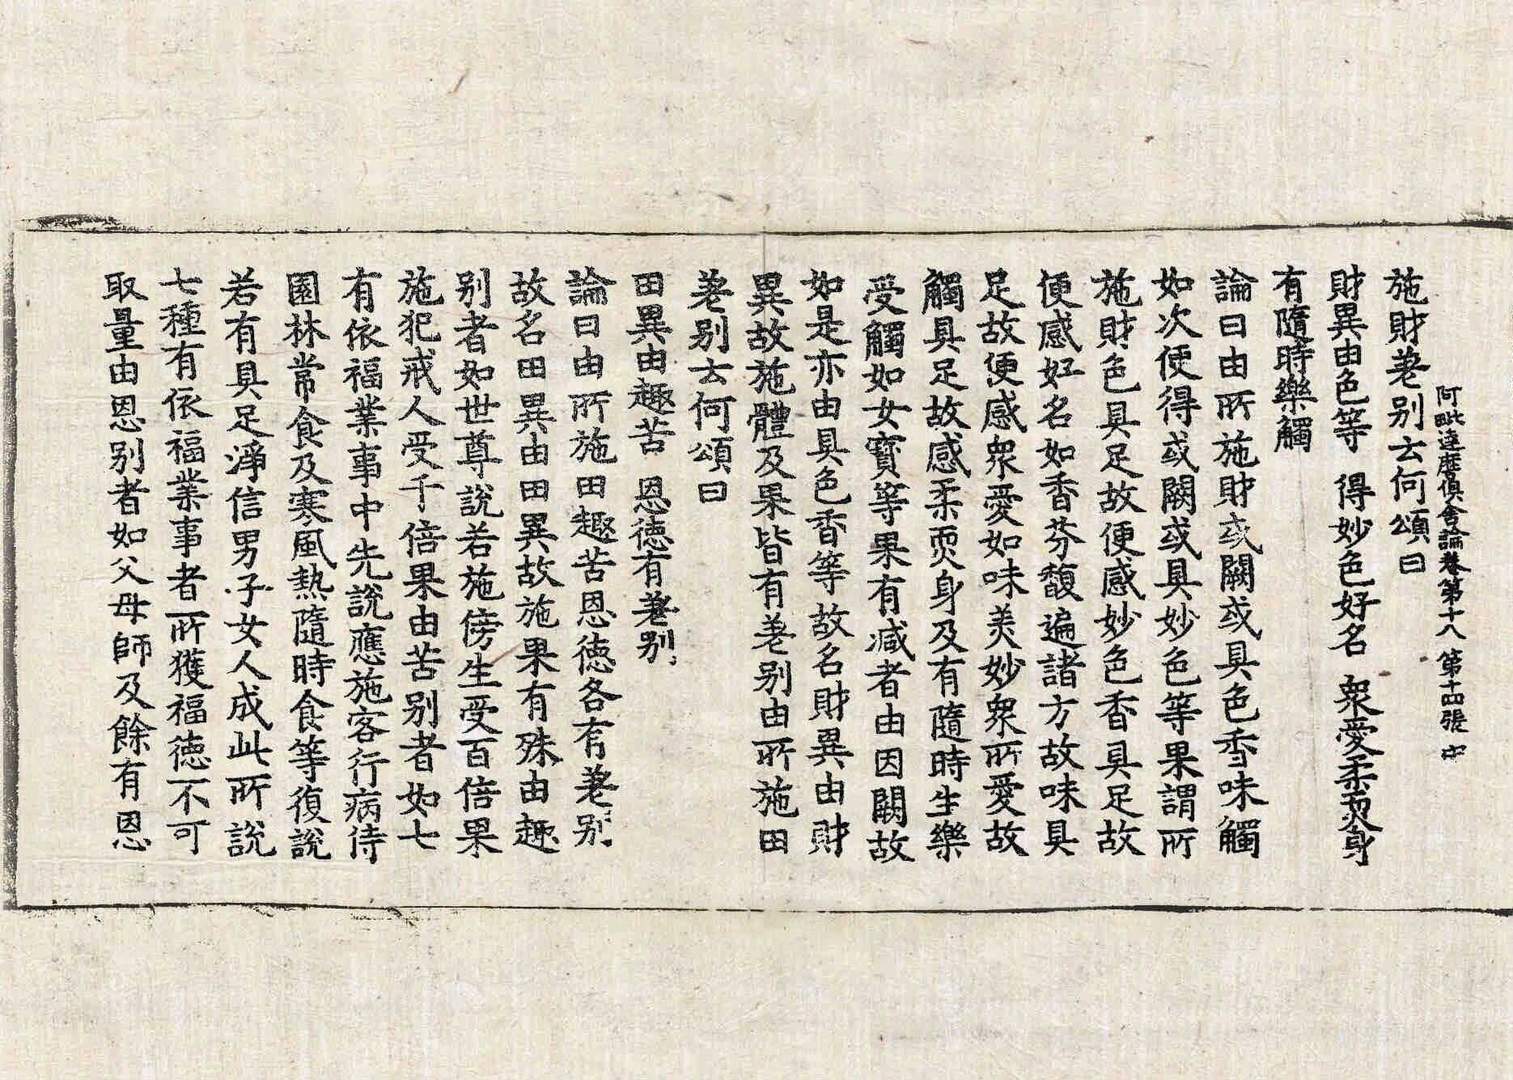 阿毗達磨俱舍論卷第十八 第十四張 中
施財差别云何頌曰
財異由色等 得妙色好名 衆愛柔耎身
有隨時樂觸
論曰由所施財或闕或具色香味觸
如次便得或闕或具妙色等果謂所
施財色具足故便感妙色香具足故
便感好名如香芬馥遍諸方故味具
足故便感衆愛如味美妙衆所愛故
觸具足故感柔耎身及有隨時生樂
受觸如女寶等果有减者由因闕故
如是亦由具色香等故名財異由財
異故施體及果皆有差别由所施田
差别云何頌曰
田異由趣苦 恩德有差别
論曰由所施田趣苦恩德各有差别
故名田異由田異故施果有殊由趣
别者如世尊說若施傍生受百倍果
施犯戒人受千倍果由苦别者如七
有依福業事中先說應施客行病侍
園林常食及寒風熱隨時食等復說
若有具足淨信男子女人成此所說
七種有依福業事者所獲福德不可
取量由恩别者如父母師及餘有恩